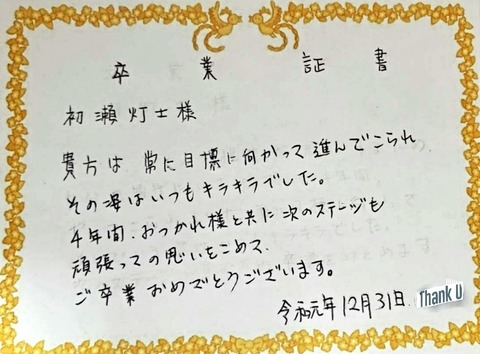 卒業証書
初瀬灯士様
貴方は 常に目標に向かって進んでこられ
その姿はいつもキラキラでした。
4年間、おつかれ様と共に次のステージも
頑張っての思いをこめて、
ご卒業おめでとうございます。
令和元年12月31日
Thank U